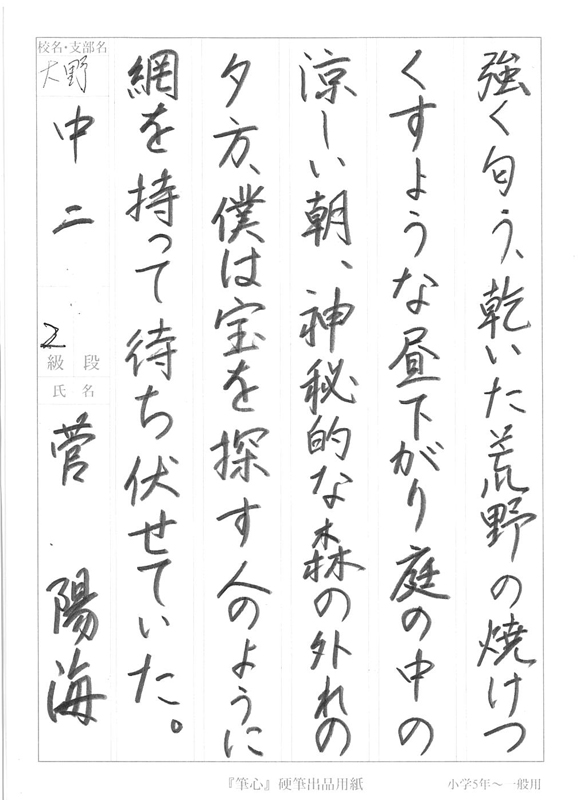 強く匂う、乾いた荒野の焼けつ
くすような昼下がり庭の中の
涼しい朝、神秘的な森の外れの
夕方、僕は宝を探す人のように
網を持って待ち伏せていた。
校名・支部名
大野
中二
2
級 段
氏名
菅 陽海
『筆心』硬筆出品用紙
小学5年～一般用